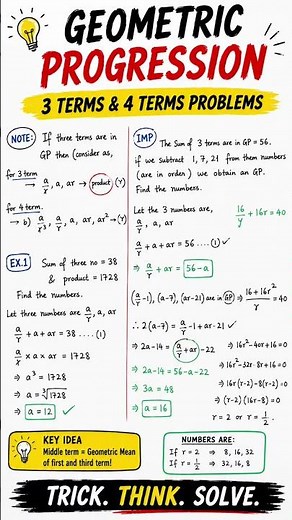 GEOMETRIC
PROGRESSION
3 TERMS & 4 TERMS PROBLEMS
NOTE: If three terms are in
GP then (consider as,
for 3 term
→ a/r, a, ar → product (Y)
for 4 term.
→ b) a/r³, a/r, a, ar, ar² → (Y)
EX.1 Sum of three no = 38
& product = 1728
Find the numbers.
Let three numbers are a/r, a, ar
a/r + a + ar = 38 .... (1)
a/r x a x ar = 1728
⇒ a³ = 1728
⇒ a = ∛1728
⇒ a = 12 ✓
KEY IDEA
Middle term = Geometric Mean
of first and third term!
IMP The Sum of 3 terms are in GP = 56.
if we subtract 1, 7, 21 from them numbers
(are in order) we obtain an GP.
Find the numbers.
Let the 3 numbers are,
a/r, a, ar
16/y + 16r = 40
a/r + a + ar = 56 .... (1) ✓
⇒ a/r + ar = 56-a
(a/r -1), (a-7), (ar-21) are in GP
∴ 2(a-7) = a/r -1 + ar-21 ✓
⇒ 2a-14 = a/r + ar -22
⇒ 2a-14 = 56-a-22
⇒ 3a = 48
⇒ a = 16
⇒ 16+16r²/r = 40
⇒ 16r²-40r+16 = 0
⇒ 16r²-32r-8r+16 = 0
⇒ 16r(r-2)-8(r-2) = 0
⇒ (r-2)(16r-8) = 0
r = 2 or r = 1/2.
NUMBERS ARE:
If r = 2 ⇒ 8, 16, 32
If r = 1/2 ⇒ 32, 16, 8
TRICK. THINK. SOLVE.